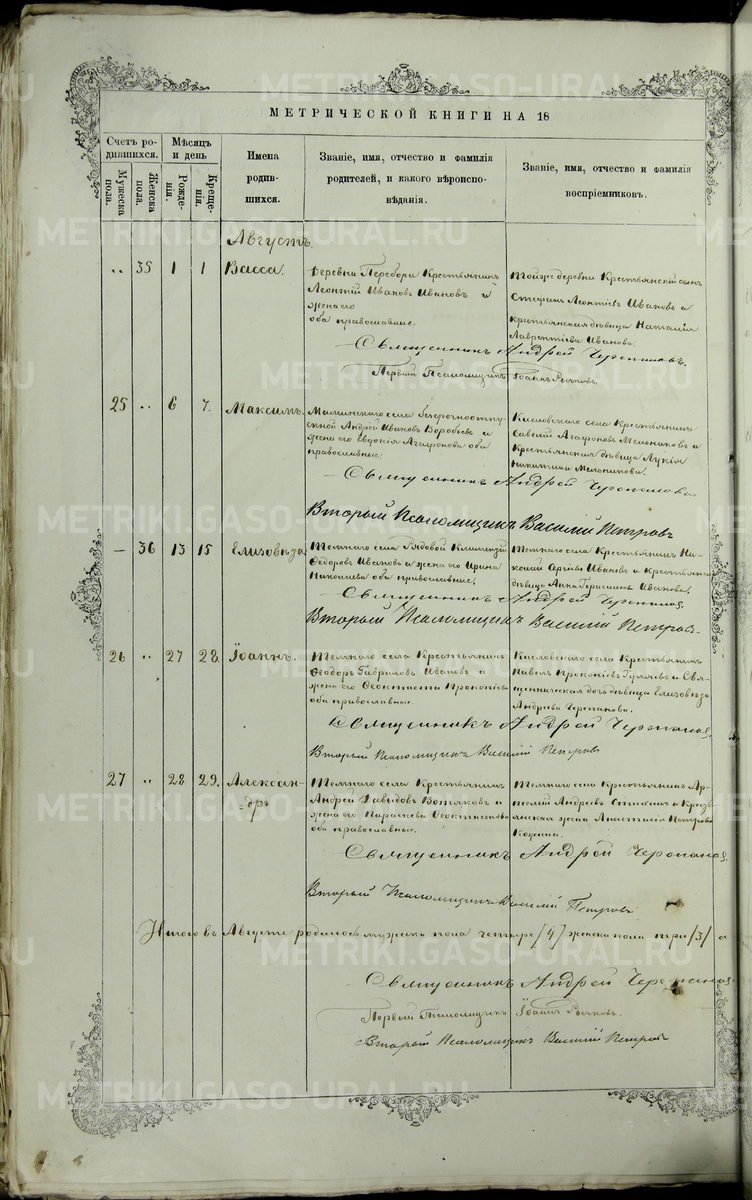 МЕТРИЧЕСКОЙ КНИГИ НА 18
Счетъ ро-
дившихся.
Мужеска пола.
Женска пола.
Мѣсяцъ
и день
Рожде-
нія.
Креще-
нія.
Имена
родив-
шихся.
Званіе, имя, отчество и фамилія
родителей, и какого вѣроиспо-
вѣданія.
Званіе, имя, отчество и фамилія
воспріемниковъ.
Августъ.
.. 35 1 1 Васса.
Деревни Перебора Крестьянинъ
Леонтій Ивановъ Ивановъ и
жена его
оба православные.
Тойже деревни Крестьянскій сынъ
Стефанъ Леонтіевъ Ивановъ и
крестьянская дѣвица Наталія
Лаврентіева Иванова.
Священникъ Андрей Черепановъ.
Первый Псаломщикъ Іоаннъ Рычковъ.
25 .. 6 7. Максимъ.
села безсрочноотпу-
скной Андрей Ивановъ Воробьевъ и
жена его Евдокія Агафонова оба
православные.
Кисловскаго села Крестьянинъ
Савватій Агафоновъ Мельниковъ и
Крестьянская дѣвица Лукія
Никитина Мельникова.
Священникъ Андрей Черепановъ
Вторый Псаломщикъ Василій Петровъ
– 36 13 15 Елизовѣта
Темнаго села Рядовой Климентій
Федоровъ Ивановъ и жена его Ирина
Николаева оба православные.
Темнаго села Крестьянинъ Ни-
Ивановъ и Крестьян
дѣвица Анна Герасимова Иванова.
Священникъ Андрей Черепановъ
Вторый Псаломщикъ Василій Петровъ.
26 .. 27 28. Іоаннъ.
Темнаго села Крестьянинъ
Ѳеодоръ Гавриловъ Ивановъ и
жена его Ѳеоктиста Прокопіева
оба православные.
Кисловскаго села Крестьянинъ
Павелъ Прокопіевъ Гуляевъ и Свя-
щенническая дочь дѣвица Елизовѣта
Андреева Черепанова.
Священникъ Андрей Черепановъ
Вторый Псаломщикъ Василій Петровъ
27 .. 28 29. Алексан-
дръ
Темнаго села Крестьянинъ
Андрей Давыдовъ Вотяковъ и
жена его Параскева Ѳеоктистова
оба православные.
Темнаго села Крестьянинъ Ар-
темій Андреевъ и Крестья-
янская жена Анастасія Петрова
Священникъ Андрей Черепановъ
Вторый Псаломщикъ Василій Петровъ
Итого въ Августѣ родилось мужска пола четыре /4/ женска пола три /3/
Священникъ Андрей Черепановъ
Первый Псаломщикъ Іоаннъ Рычковъ.
Вторый Псаломщикъ Василій Петровъ
METRIKI.GASO-URAL.RU